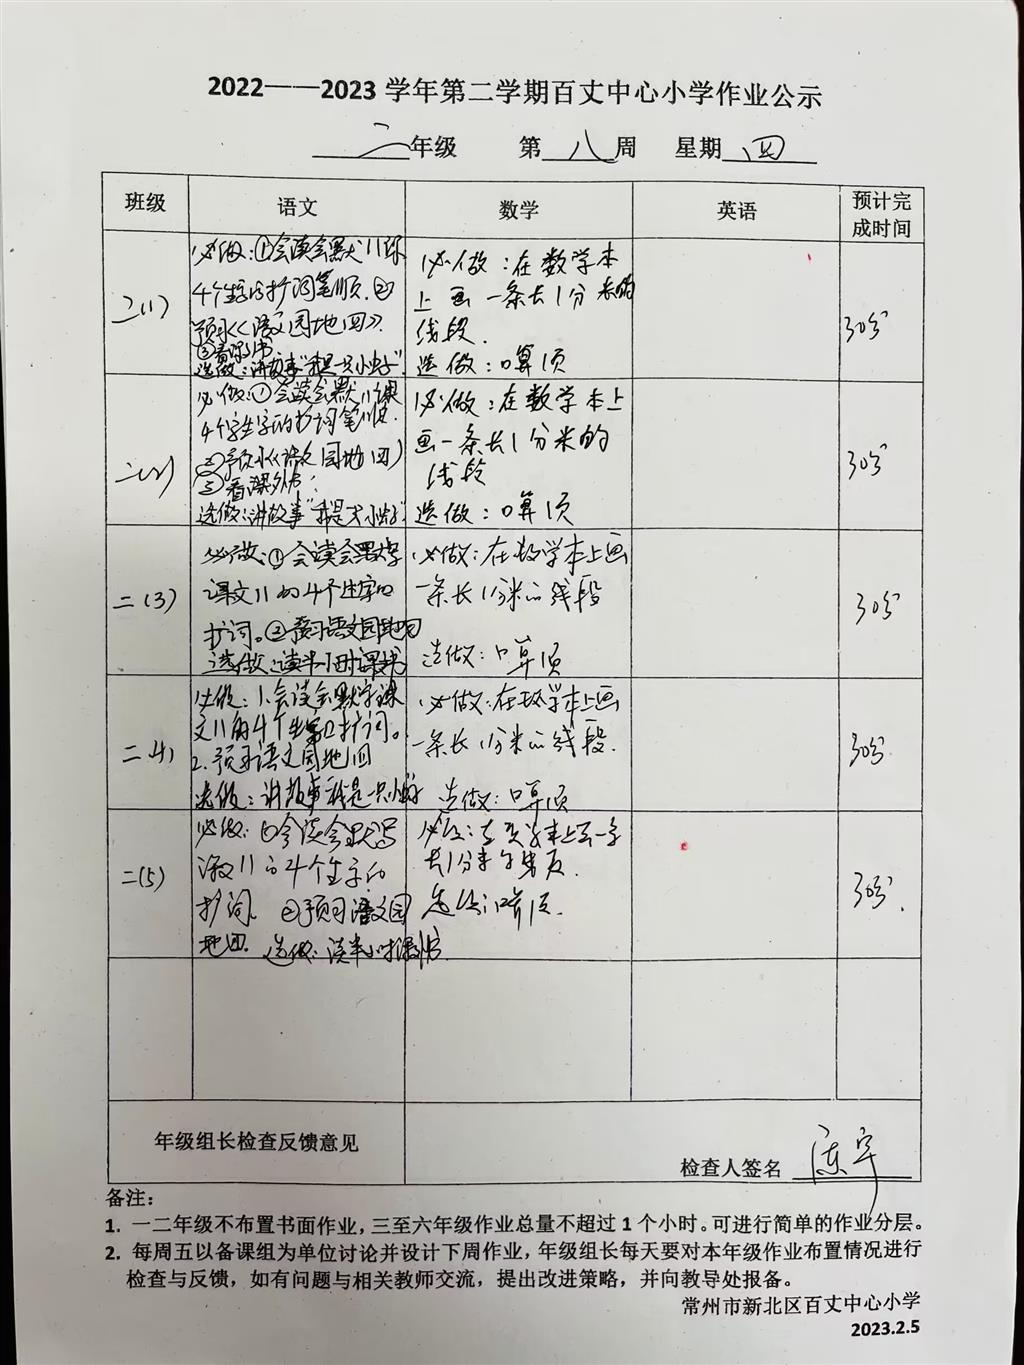 2022——2023 学年第二学期百丈中心小学作业公示
二年级 第八周 星期四
班级 语文 数学 英语 预计完成时间
二(1)
必做:①会读会默11课
4个生字的扩词笔顺.②
预习《语文园地四》.
③看课外书
选做:讲故事"我是一只小虫子"
必做:在数学本
上画一条长1分米的
线段.
选做:口算1页
30分
二(2)
必做:①会读会默11课
4个字生字的扩词笔顺.
②预习《语文园地四》
③看课外书;
选做:讲故事"我是只小虫子"
必做:在数学本上
画一条长1分米的
线段
选做:口算1页
30分
二(3)
必做:①会读会默写
课文11的4个生字四
扩词。②预习语文园地四
选做:读半小时课外书
必做:在数学本上画
一条长1分米的线段
选做:口算1页
30分
二(4)
必做:1.会读会默字课
文11的4个生字扩词。
2.预习语文园地四
选做:讲故事我是一只小虫子
必做:在数学本上画
一条长1分米的线段.
选做:口算1页
30分
二(5)
必做:①会读会默写
课文11的4个生字的
扩词. ②预习语文园
地四. 选做:读半小时课外书
必做:在数学本上画一条
长1分米的线段.
选做:口算1页.
30分.
年级组长检查反馈意见
检查人签名
备注:
1. 一二年级不布置书面作业,三至六年级作业总量不超过 1 个小时。可进行简单的作业分层。
2. 每周五以备课组为单位讨论并设计下周作业,年级组长每天要对本年级作业布置情况进行
检查与反馈,如有问题与相关教师交流,提出改进策略,并向教导处报备。
常州市新北区百丈中心小学
2023.2.5